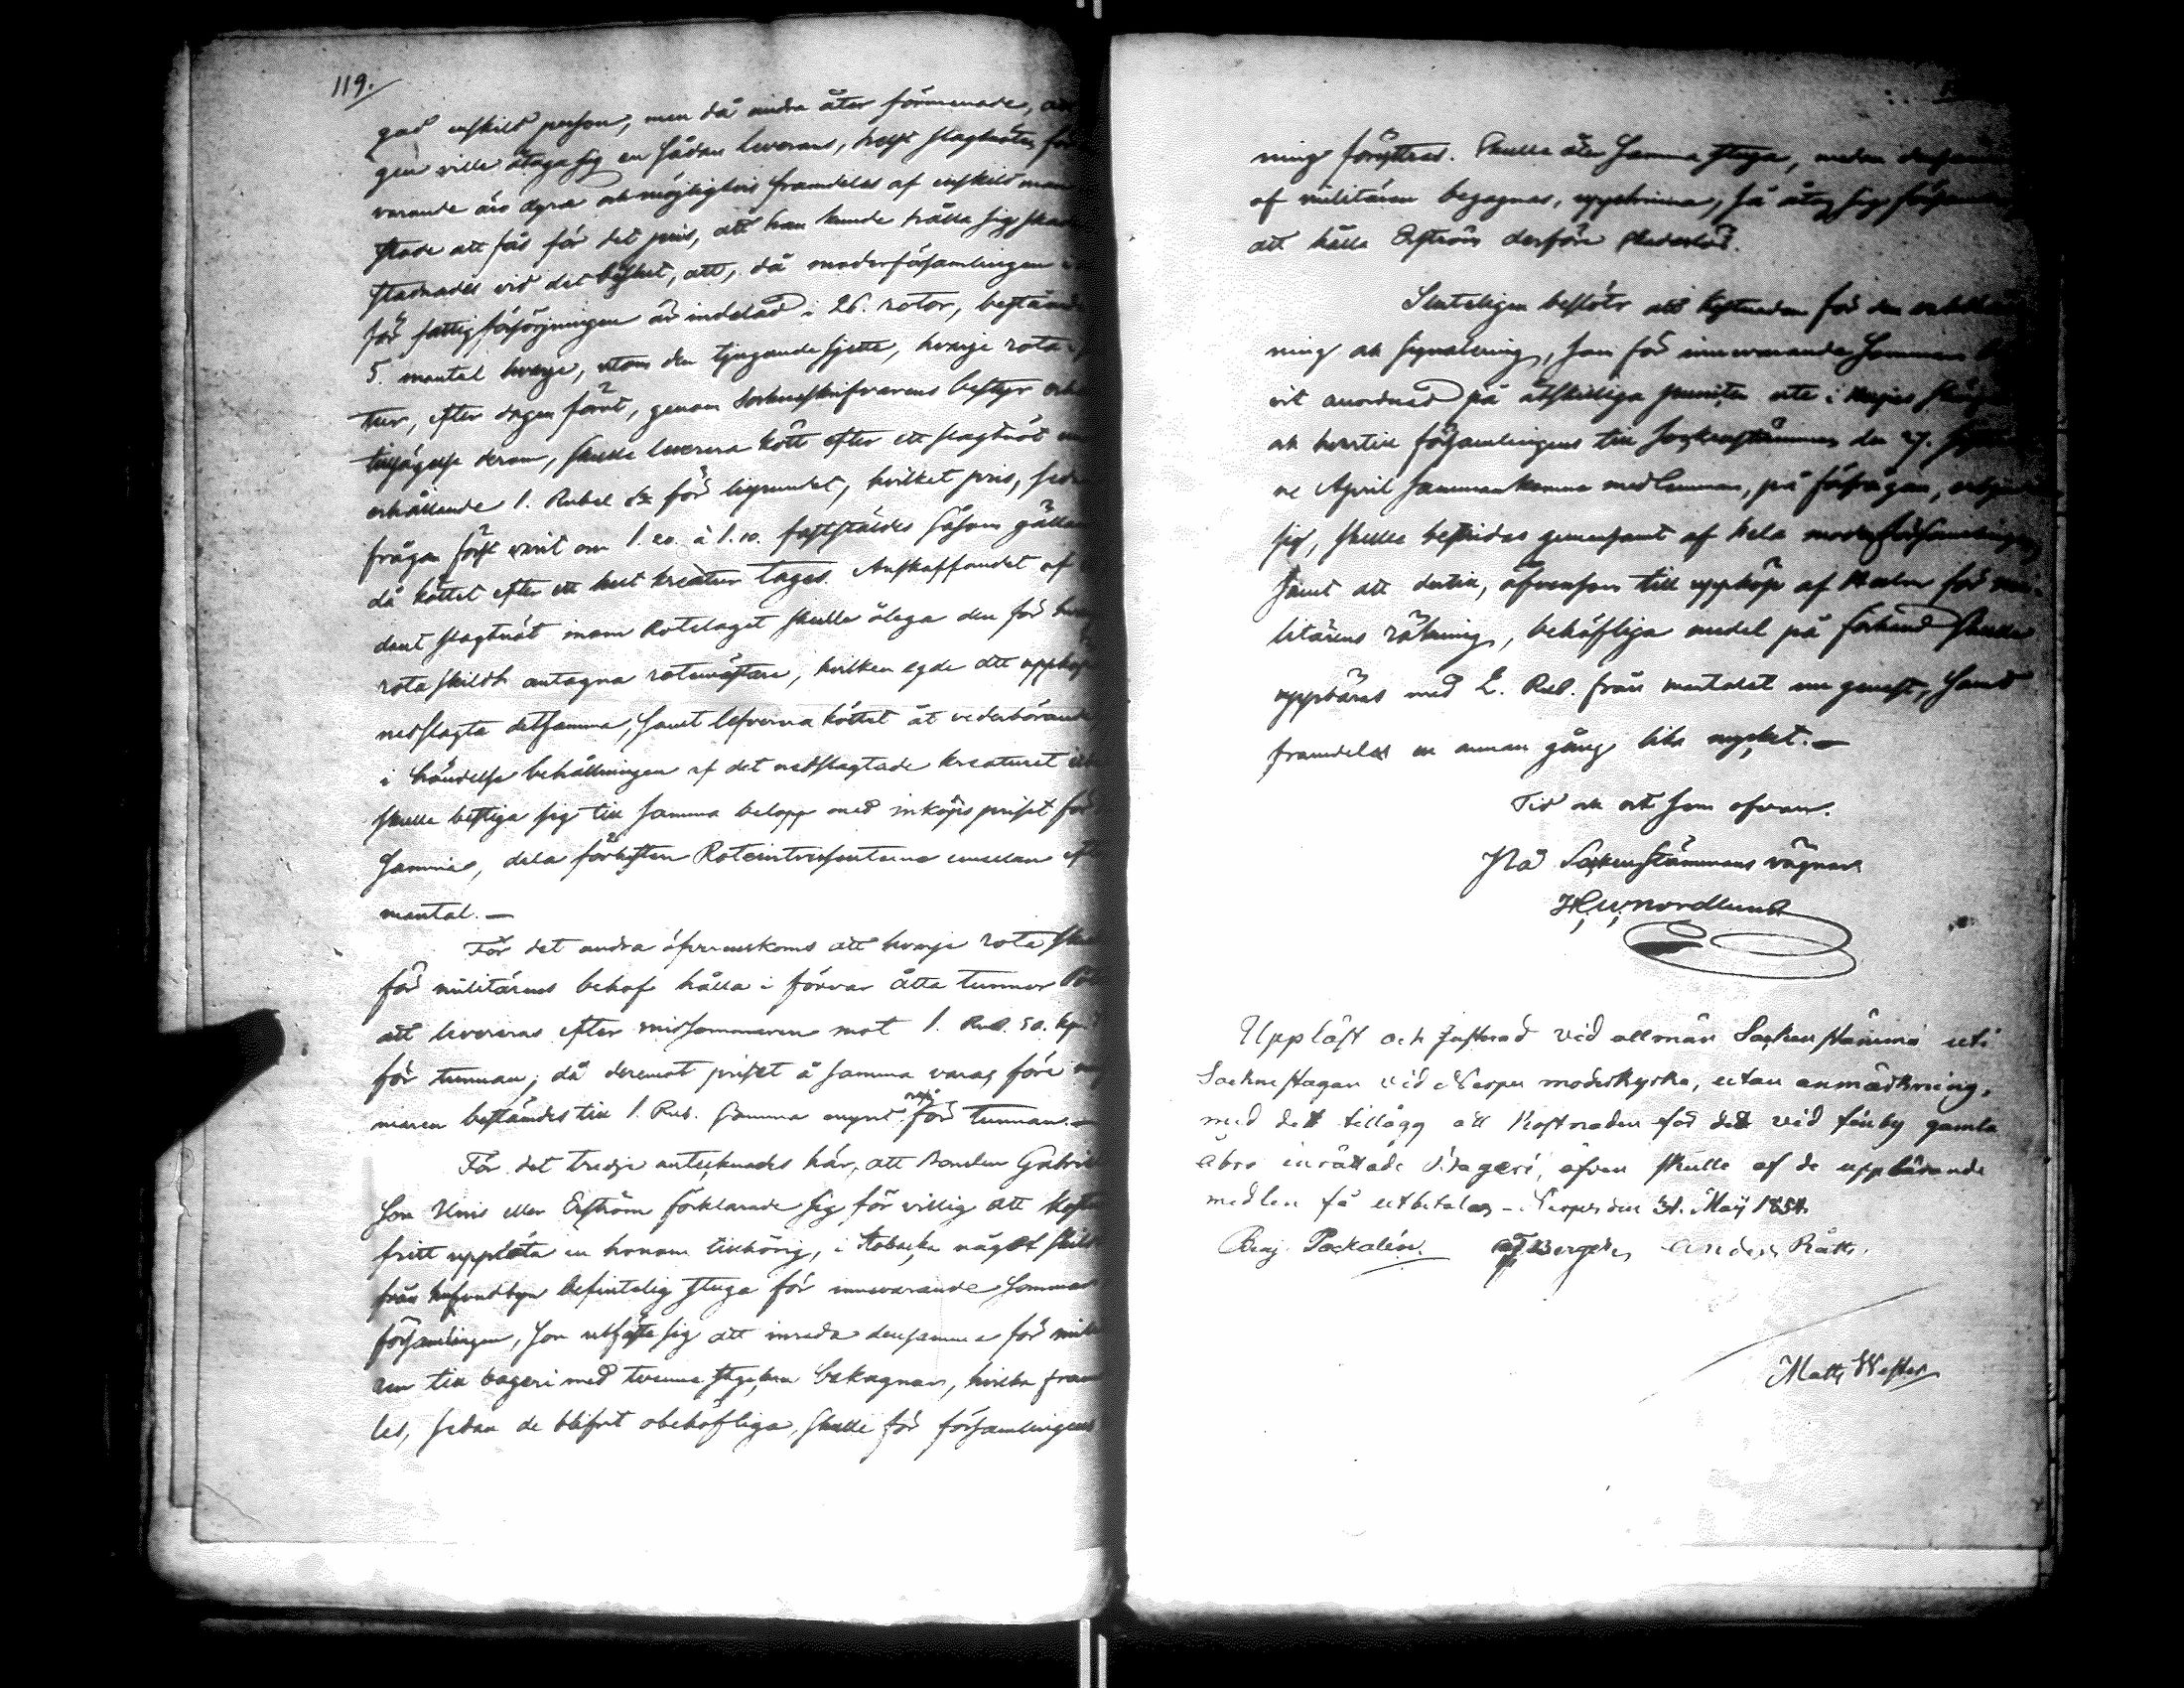 119.
gad enskild person, men då andra åter förmenade, at
gen ville åtaga sig en sådan leverans, helst slagtnöten för
varande äro dyra och möjligtvis framdeles af enskild man
stode att fås för det pris, att han kunde hålla sig skad
stadnades vid det beslut, att, då moderförsamlingen
för fattigförsörjningen är indelad i 26. rotor, bestående
5. mantal hvarje, utom den tjugondesjette, hvarje rota i
tur, efter dagen förut, genom Sockneskrifvarens bestyr
tillsägelse derom, skulle leverera kött efter ett slagtnöt
erhållande 1. Rubel för lispundet, hvilket pris, sedan
frågan först varit om 1.20. à 1.10. fastställdes såsom gällan
då köttet efter ett helt kreatur tages. Anskaffandet af
dant slagtnöt inom Rotelaget skulle ålega den för hvarje
rota skildt antagna rotemästare, hvilken egde att uppköpa
nedslagta detsamma, samt lefverera köttet åt vederbörande
i händelse behållningen af det nedslagtade kreaturet icke
skulle bestiga sig till samma belopp med inköpspriset för
samma, dela förlusten Roteintressenterna emellan efter
mantal. —
För det andra öfverenskoms att hvarje rota sku
för militärens behof hålla i förvar åtta tunnor
att levereras efter midsommaren mot 1. Rub. 50. kop.
för tunnan; då deremot priset å samma vara före
maren bestämdes till 1. Rub. samma mynt för tunnan. —
För det tredje antecknades här, att bonden Gabriel
son Unis eller Erström förklarade sig för villig att kost
fritt upplåta en honom tillhörig, i Stobacka något skild
från befintelig stuga för innevarande sommar
församlingen, som utfäste sig att inreda densamma för milit
ren till bageri med tvenne bakugnar, hvilka fram
les, sedan de blifvit obehöfliga, skulle för församlingens
ning försäljas. Skulle åter samma stuga, medan densamma
af militären begagnas, uppbrinna, så åtog sig församl
att hålla Erström derföre skadeslös.
Slutligen beslöts att kostnaden för den
ning och signalering, som för innevarande sommar
vit anordnad på åtskilliga punkter ute i skärg
och hvartill församlingens till sockenstämman den 27.
ne April sammankomne medlemmar, på förfrågan,
sig, skulle bestridas gemensamt af hela moderförsamlingen,
samt att dertill, äfvensom till uppköp af Halm för mi-
litärens räkning, behöfliga medel på förhand skulle
uppbäras med 2. Rub. från mantalet nu genast, samt
framdeles en annan gång lika mycket. —
Tid och ort som ofvan.
På Sockenstämmans vägnar
H. W. Nordlund
Uppläst och Justerad vid allmän Sockenstämma uti
Sockenstugan vid Nerpes moderkyrka, utan anmärkning,
med det tillägg att Kostnaden för det vid Finby gamla
åbro inrättade Bageri, äfven skulle af de uppbärande
medlen få utbetalas - Nerpes den 31. Maij 1854.
Benj. Packalén. Bergelin Anders Rått.
Matts Wester